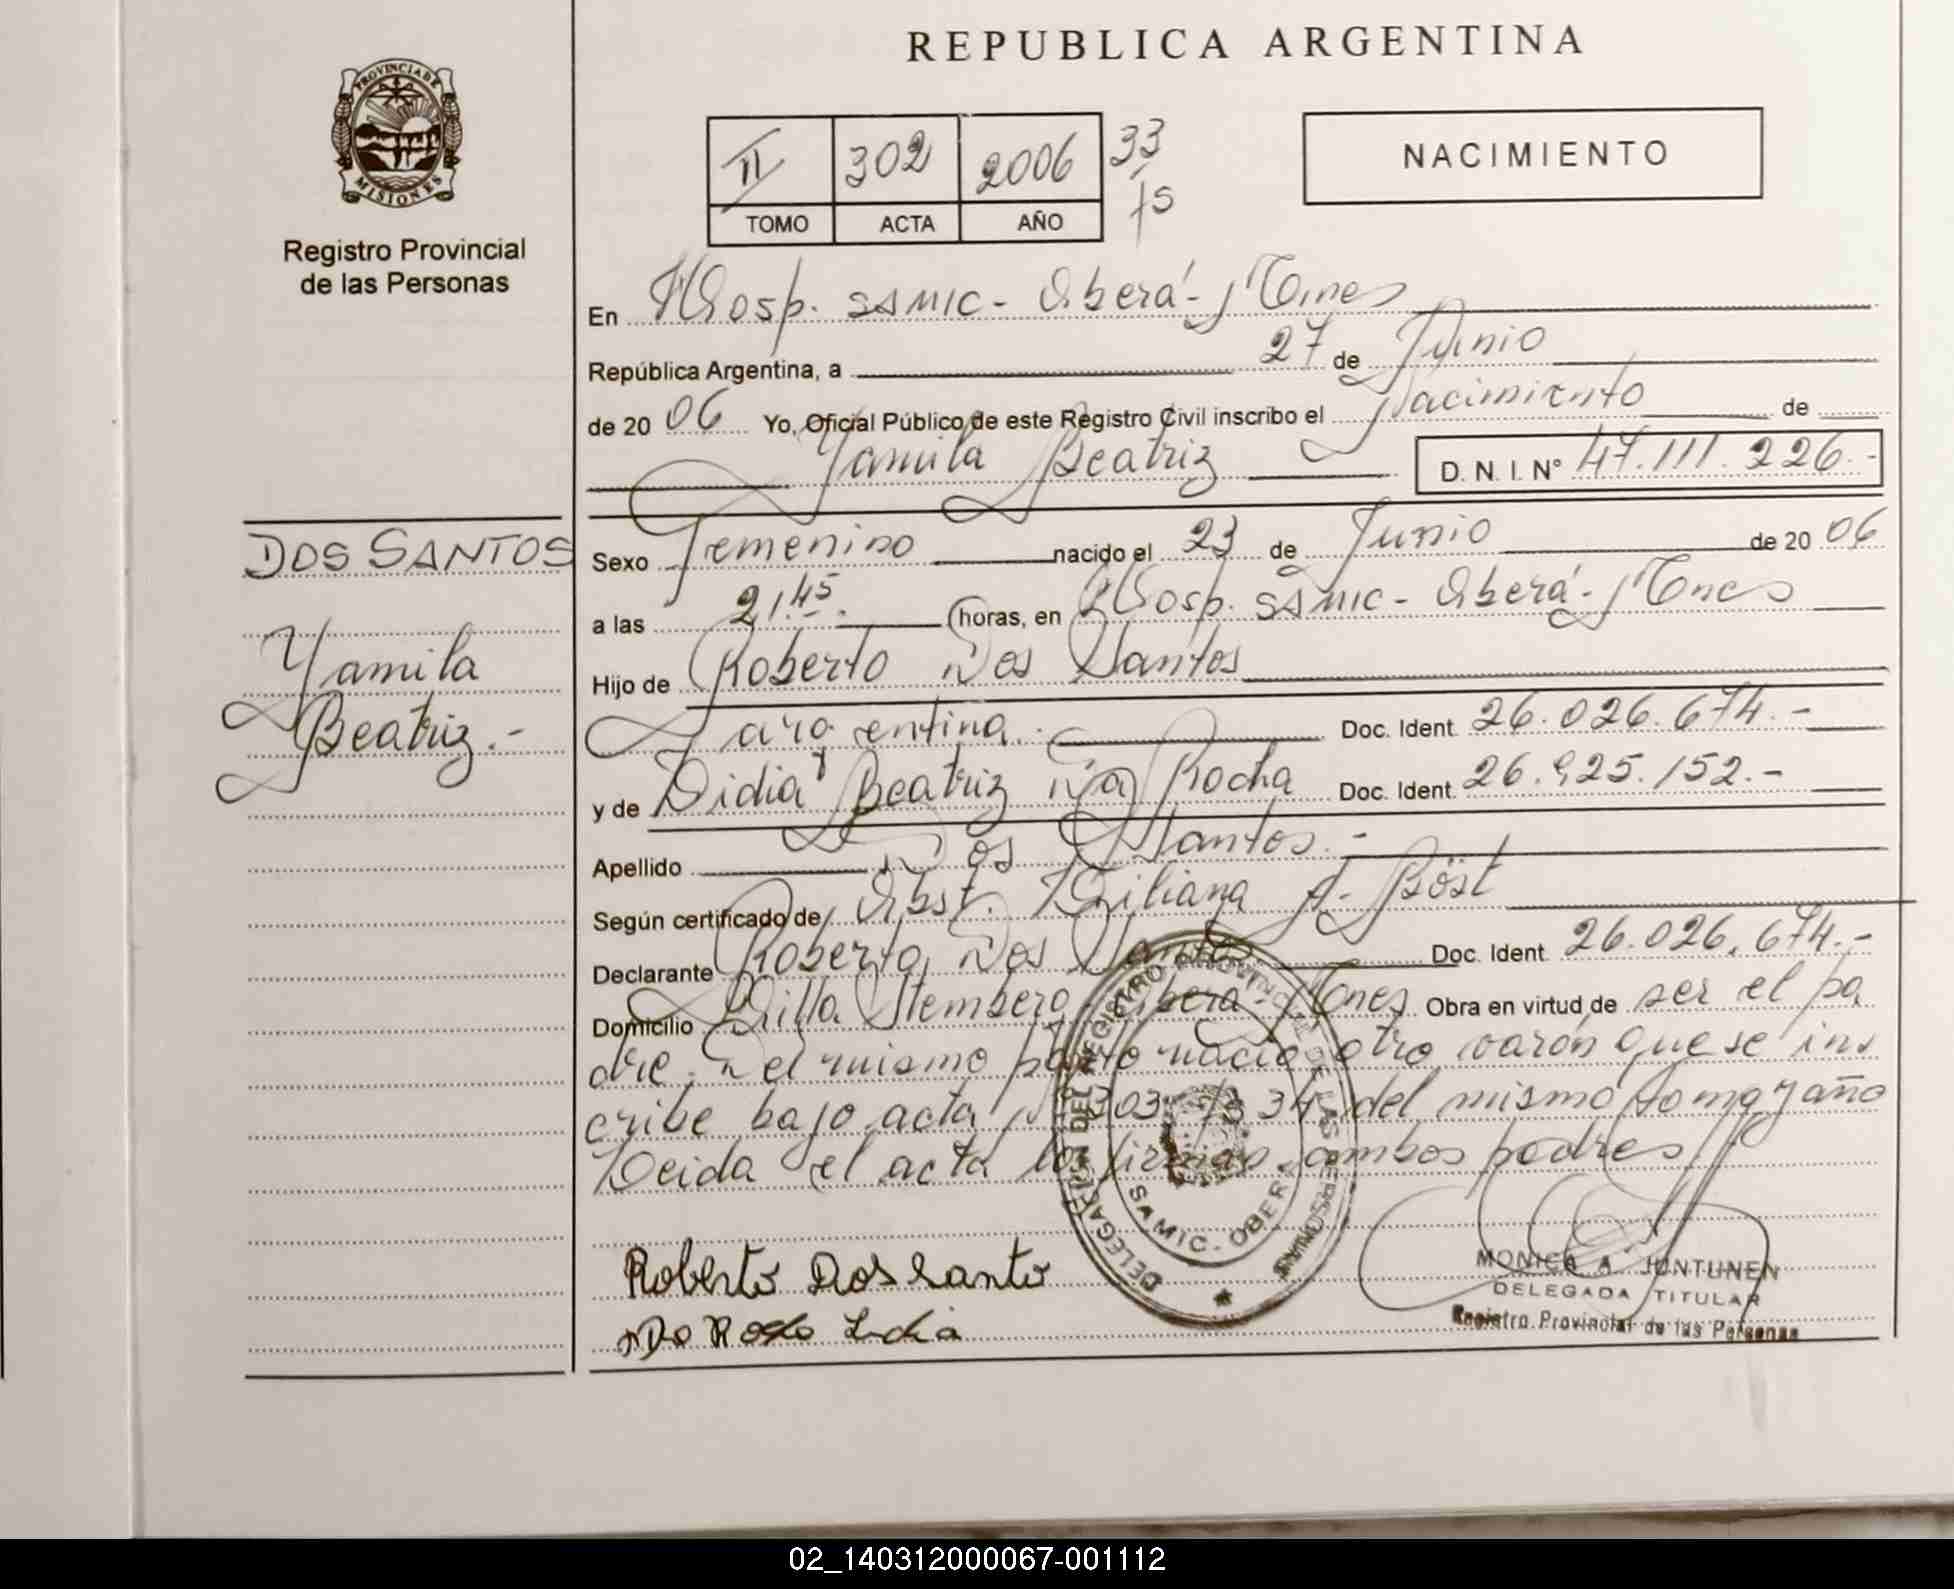 REPUBLICA ARGENTINA
PROVINCIA DE
MISIONES
Registro Provincial
de las Personas
II 302 2006 33
TOMO ACTA AÑO fs
NACIMIENTO
En Hosp. SAMIC - Oberá - Mnes
República Argentina, a 27 de Junio
de 20 06 Yo, Oficial Público de este Registro Civil inscribo el Nacimiento de
Yamila Beatriz D. N. I. N° 47.111.226.-
DOS SANTOS
Yamila
Beatriz.-
Sexo Femenino nacido el 23 de Junio de 20 06
a las 21.45. horas, en Hosp. SAMIC - Oberá - Mnes
Hijo de Roberto Dos Santos
argentina.- Doc. Ident. 26.026.674.-
y de Lidia Beatriz Da Rocha Doc. Ident. 26.925.152.-
Apellido Dos Santos.-
Según certificado de Obst. Liliana A. Böst
Declarante Roberto Dos Santos Doc. Ident. 26.026.674.-
Domicilio Villa Stemberg - Oberá - Mnes. Obra en virtud de ser el pa
dre. Del mismo parto nació otro varón que se ins
cribe bajo acta 303 fs 34 del mismo tomo y año
Leida el acta la firman ambos padres
DELEGACION DEL REGISTRO PROVINCIAL DE LAS PERSONAS
SAMIC - OBERA
Roberto Dos Santo
Lidia
MONICA A. JUNTUNEN
DELEGADA TITULAR
Registro Provincial de las Personas
02_140312000067-001112